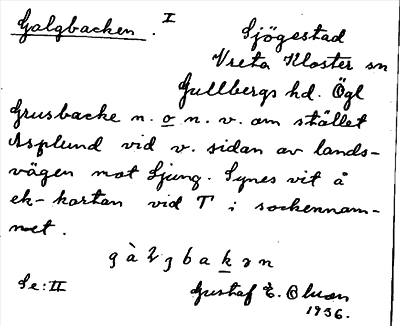 Galgbacken. I
Sjögestad
Vreta Kloster sn
Gullbergs hd. Ögl
Grusbacke n. o n. v. om stället
Asplund vid v. sidan av lands-
vägen mot Ljung. Synes vit å
ek-kartan vid T i sockennam-
net.
Se: II
Gustaf E. Olson
1936.